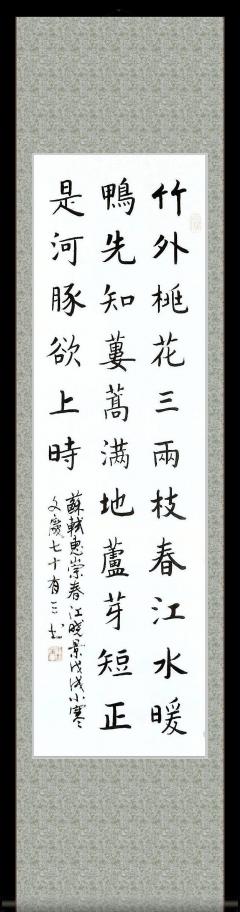 竹外桃花三兩枝春江水暖
鴨先知蔞蒿满地蘆芽短正
是河豚欲上時
蘇軾惠崇春江晓景戊戌小寒
文慶七十有三书